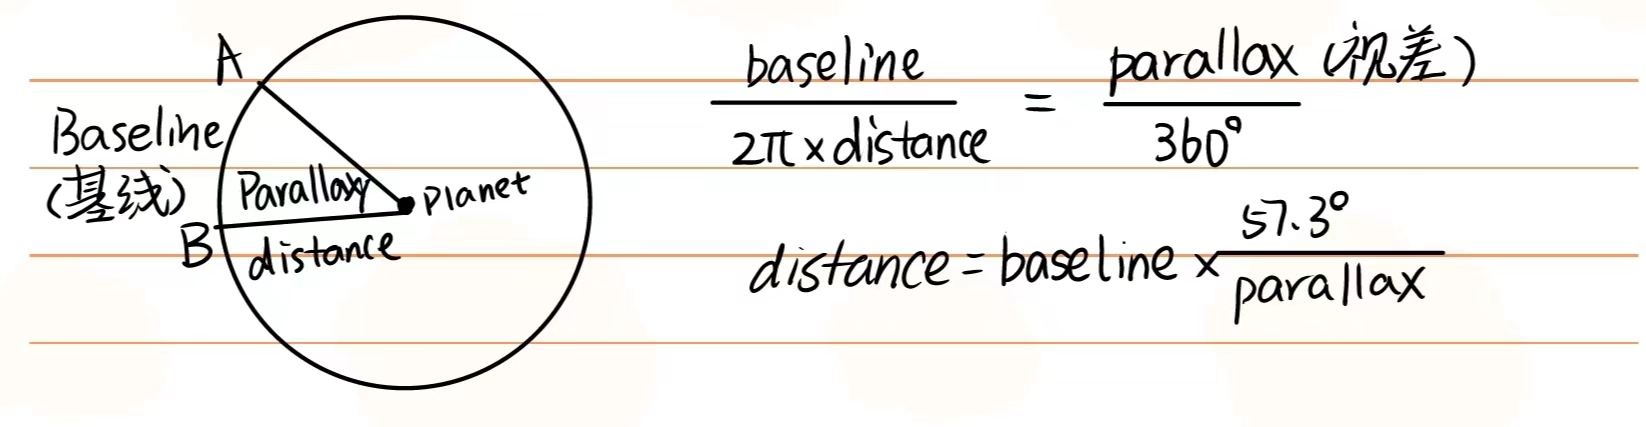 A
Baseline
(基线)
Parallax
planet
B
distance
baseline / 2π × distance = parallax (视差) / 360°
distance = baseline × 57.3° / parallax